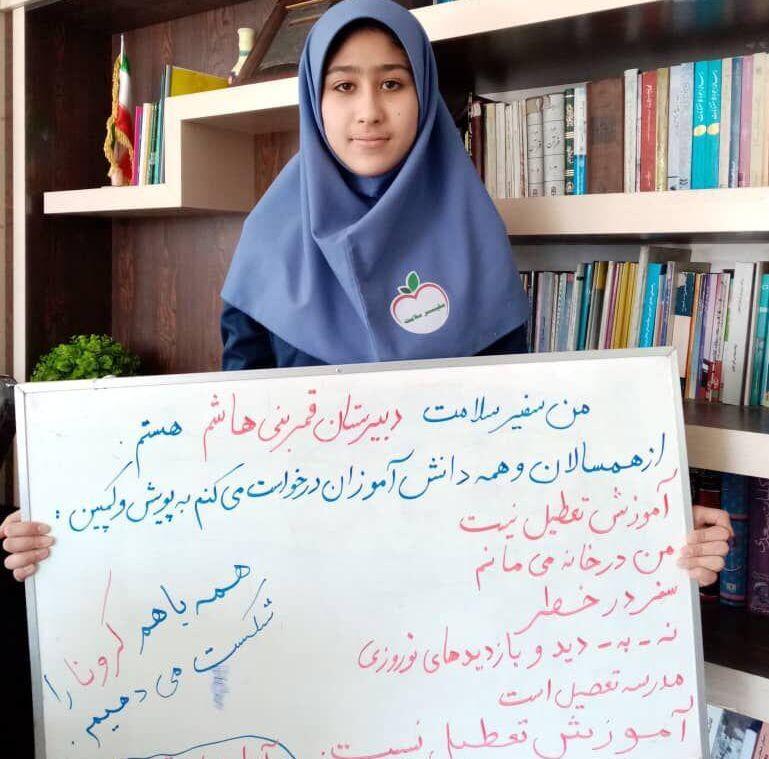 من سفیر سلامت دبیرستان قمربنی هاشم هستم.
از همسالان و همه دانش آموزان درخواست می کنم به پویش و کمپین :
آموزش تعطیل نیست
من در خانه می مانم
سفر در خطر
نه - به - دید و بازدیدهای نوروزی
مدرسه تعصیل است
آموزش تعطیل نیست.
همه با هم کرونا را
شکست می دهیم.
سفیر سلامت